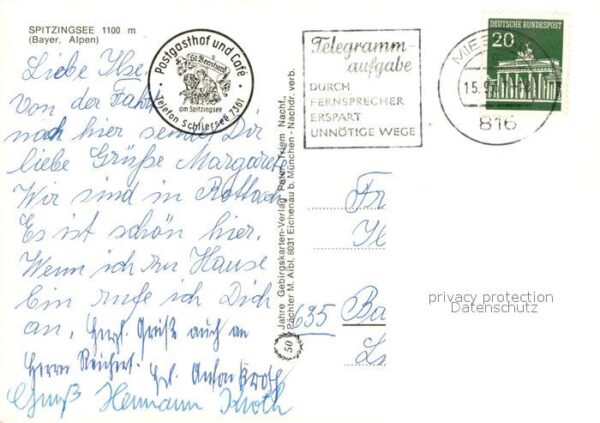 SPITZINGSEE 1100 m
(Bayer. Alpen)
Postgasthof und Café
St. Bernhard
am Spitzingsee
Telefon Schliersee 7361
Telegramm-
aufgabe
DURCH
FERNSPRECHER
ERSPART
UNNÖTIGE WEGE
DEUTSCHE BUNDESPOST
20
MIES
15.9
816
Liebe Ilse,
Von der Fahrt
nach hier sende Dir
liebe Grüße Margarete
Wir sind in Rottach
Es ist schön hier.
Wenn ich zu Hause
bin rufe ich Dich
an. Herzl. Gruß auch an
Herrn Reichert. Anton Kroth
Gruß Hermann Kroth
50 Jahre Gebirgskarten-Verlag Peter Triem Nachf.
Pächter M. Aibl, 8031 Eichenau b. München - Nachdr. verb.
Fr
Il
635 Ba
privacy protection
Datenschutz